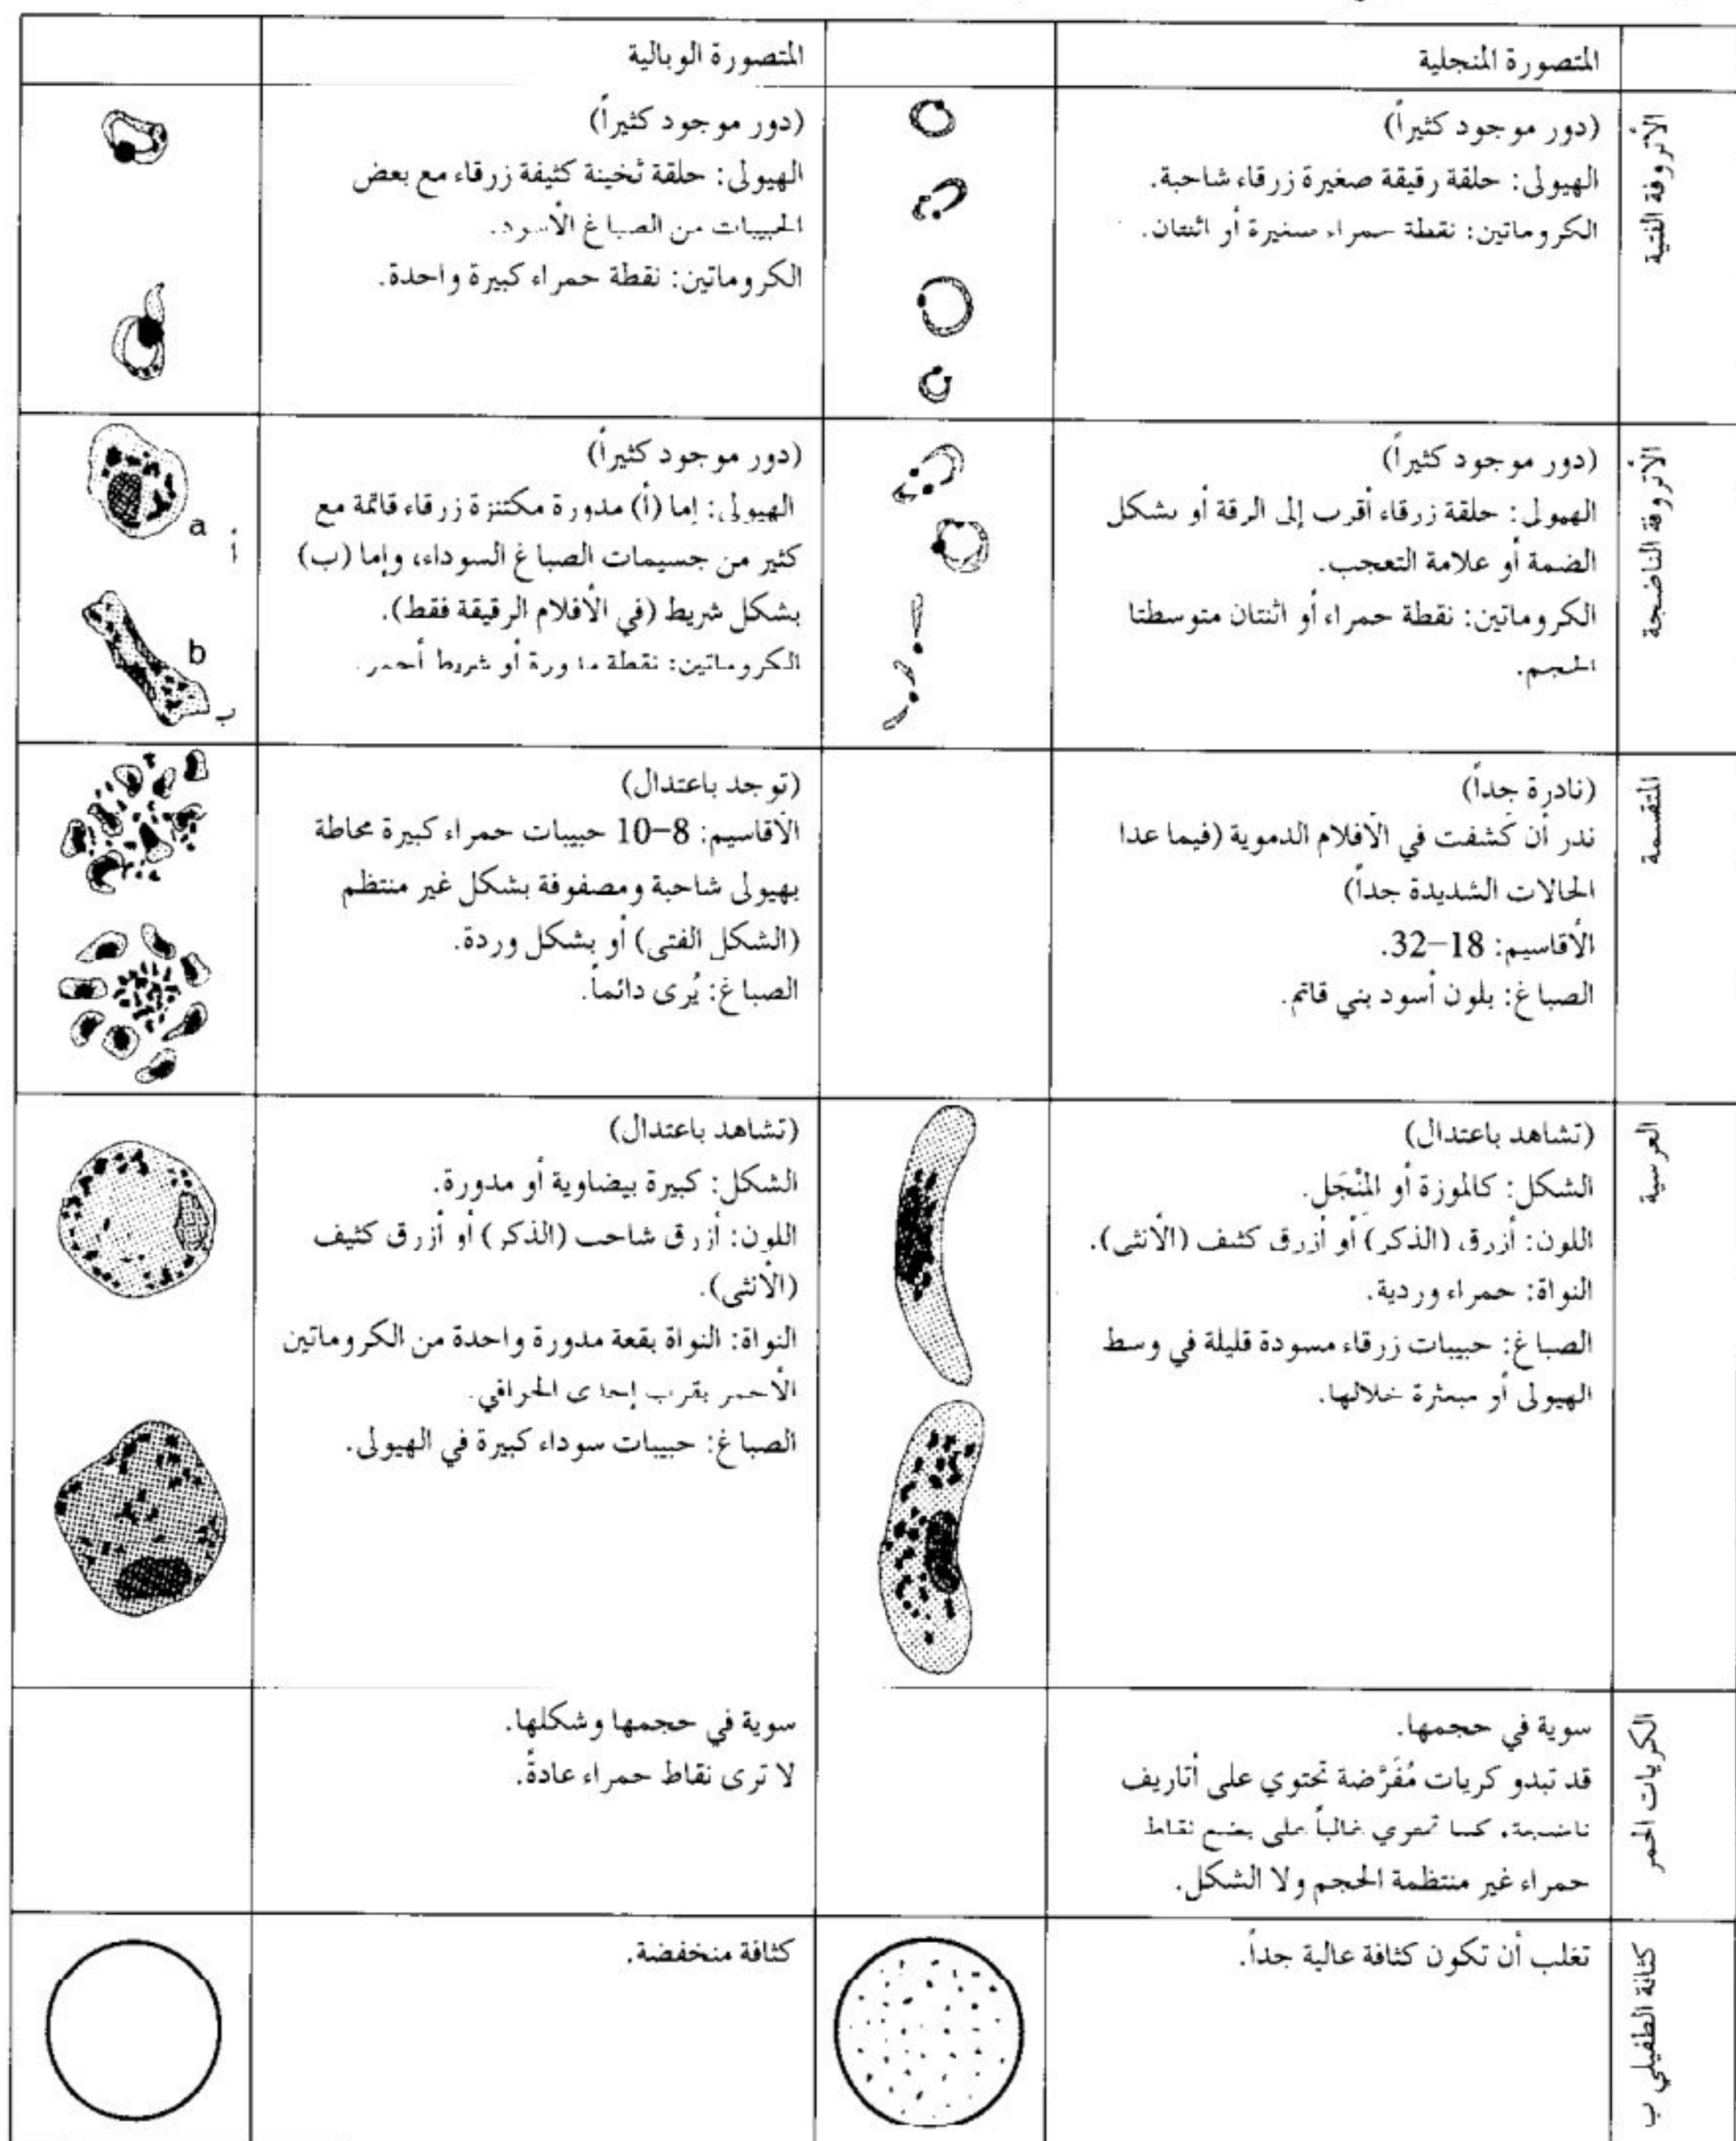 المتصورة المنجلية
المتصورة الوبالية
الأتروفة الفتية
(دور موجود كثيراً)
الهيولى: حلقة رقيقة صغيرة زرقاء شاحبة.
الكروماتين: نقطة حمراء صغيرة أو اثنتان.
(دور موجود كثيراً)
الهيولى: حلقة ثخينة كثيفة زرقاء مع بعض
الحبيبات من الصباغ الأسود.
الكروماتين: نقطة حمراء كبيرة واحدة.
الأتروفة الناضجة
(دور موجود كثيراً)
الهيولى: حلقة زرقاء أقرب إلى الرقة أو بشكل
الضمة أو علامة التعجب.
الكروماتين: نقطة حمراء أو اثنتان متوسطتا
الحجم.
(دور موجود كثيراً)
الهيولى: إما (أ) مدورة مكتنزة زرقاء قاتمة مع
كثير من جسيمات الصباغ السوداء، وإما (ب)
بشكل شريط (في الأفلام الرقيقة فقط).
الكروماتين: نقطة مدورة أو شريط أحمر.
a
أ
b
ب
المتقسمة
(نادرة جداً)
ندر أن كشفت في الأفلام الدموية (فيما عدا
الحالات الشديدة جداً)
الأقاسيم: 18–32.
الصباغ: بلون أسود بني قاتم.
(توجد باعتدال)
الأقاسيم: 8–10 حبيبات حمراء كبيرة محاطة
بهيولى شاحبة ومصفوفة بشكل غير منتظم
(الشكل الفتي) أو بشكل وردة.
الصباغ: يُرى دائماً.
العرسية
(تشاهد باعتدال)
الشكل: كالموزة أو المِنْجَل.
اللون: أزرق (الذكر) أو أزرق كثيف (الأنثى).
النواة: حمراء وردية.
الصباغ: حبيبات زرقاء مسودة قليلة في وسط
الهيولى أو مبعثرة خلالها.
(تشاهد باعتدال)
الشكل: كبيرة بيضاوية أو مدورة.
اللون: أزرق شاحب (الذكر) أو أزرق كثيف
(الأنثى).
النواة: النواة بقعة مدورة واحدة من الكروماتين
الأحمر بقرب إحدى الحوافي.
الصباغ: حبيبات سوداء كبيرة في الهيولى.
الكريات الحمر
سوية في حجمها.
قد تبدو كريات مُفَرَّضة تحتوي على أتاريف
ناضجة. كما تحتوي غالباً على بضع نقاط
حمراء غير منتظمة الحجم ولا الشكل.
سوية في حجمها وشكلها.
لا ترى نقاط حمراء عادةً.
كثافة الطفيلي ب
تغلب أن تكون كثافة عالية جداً.
كثافة منخفضة.